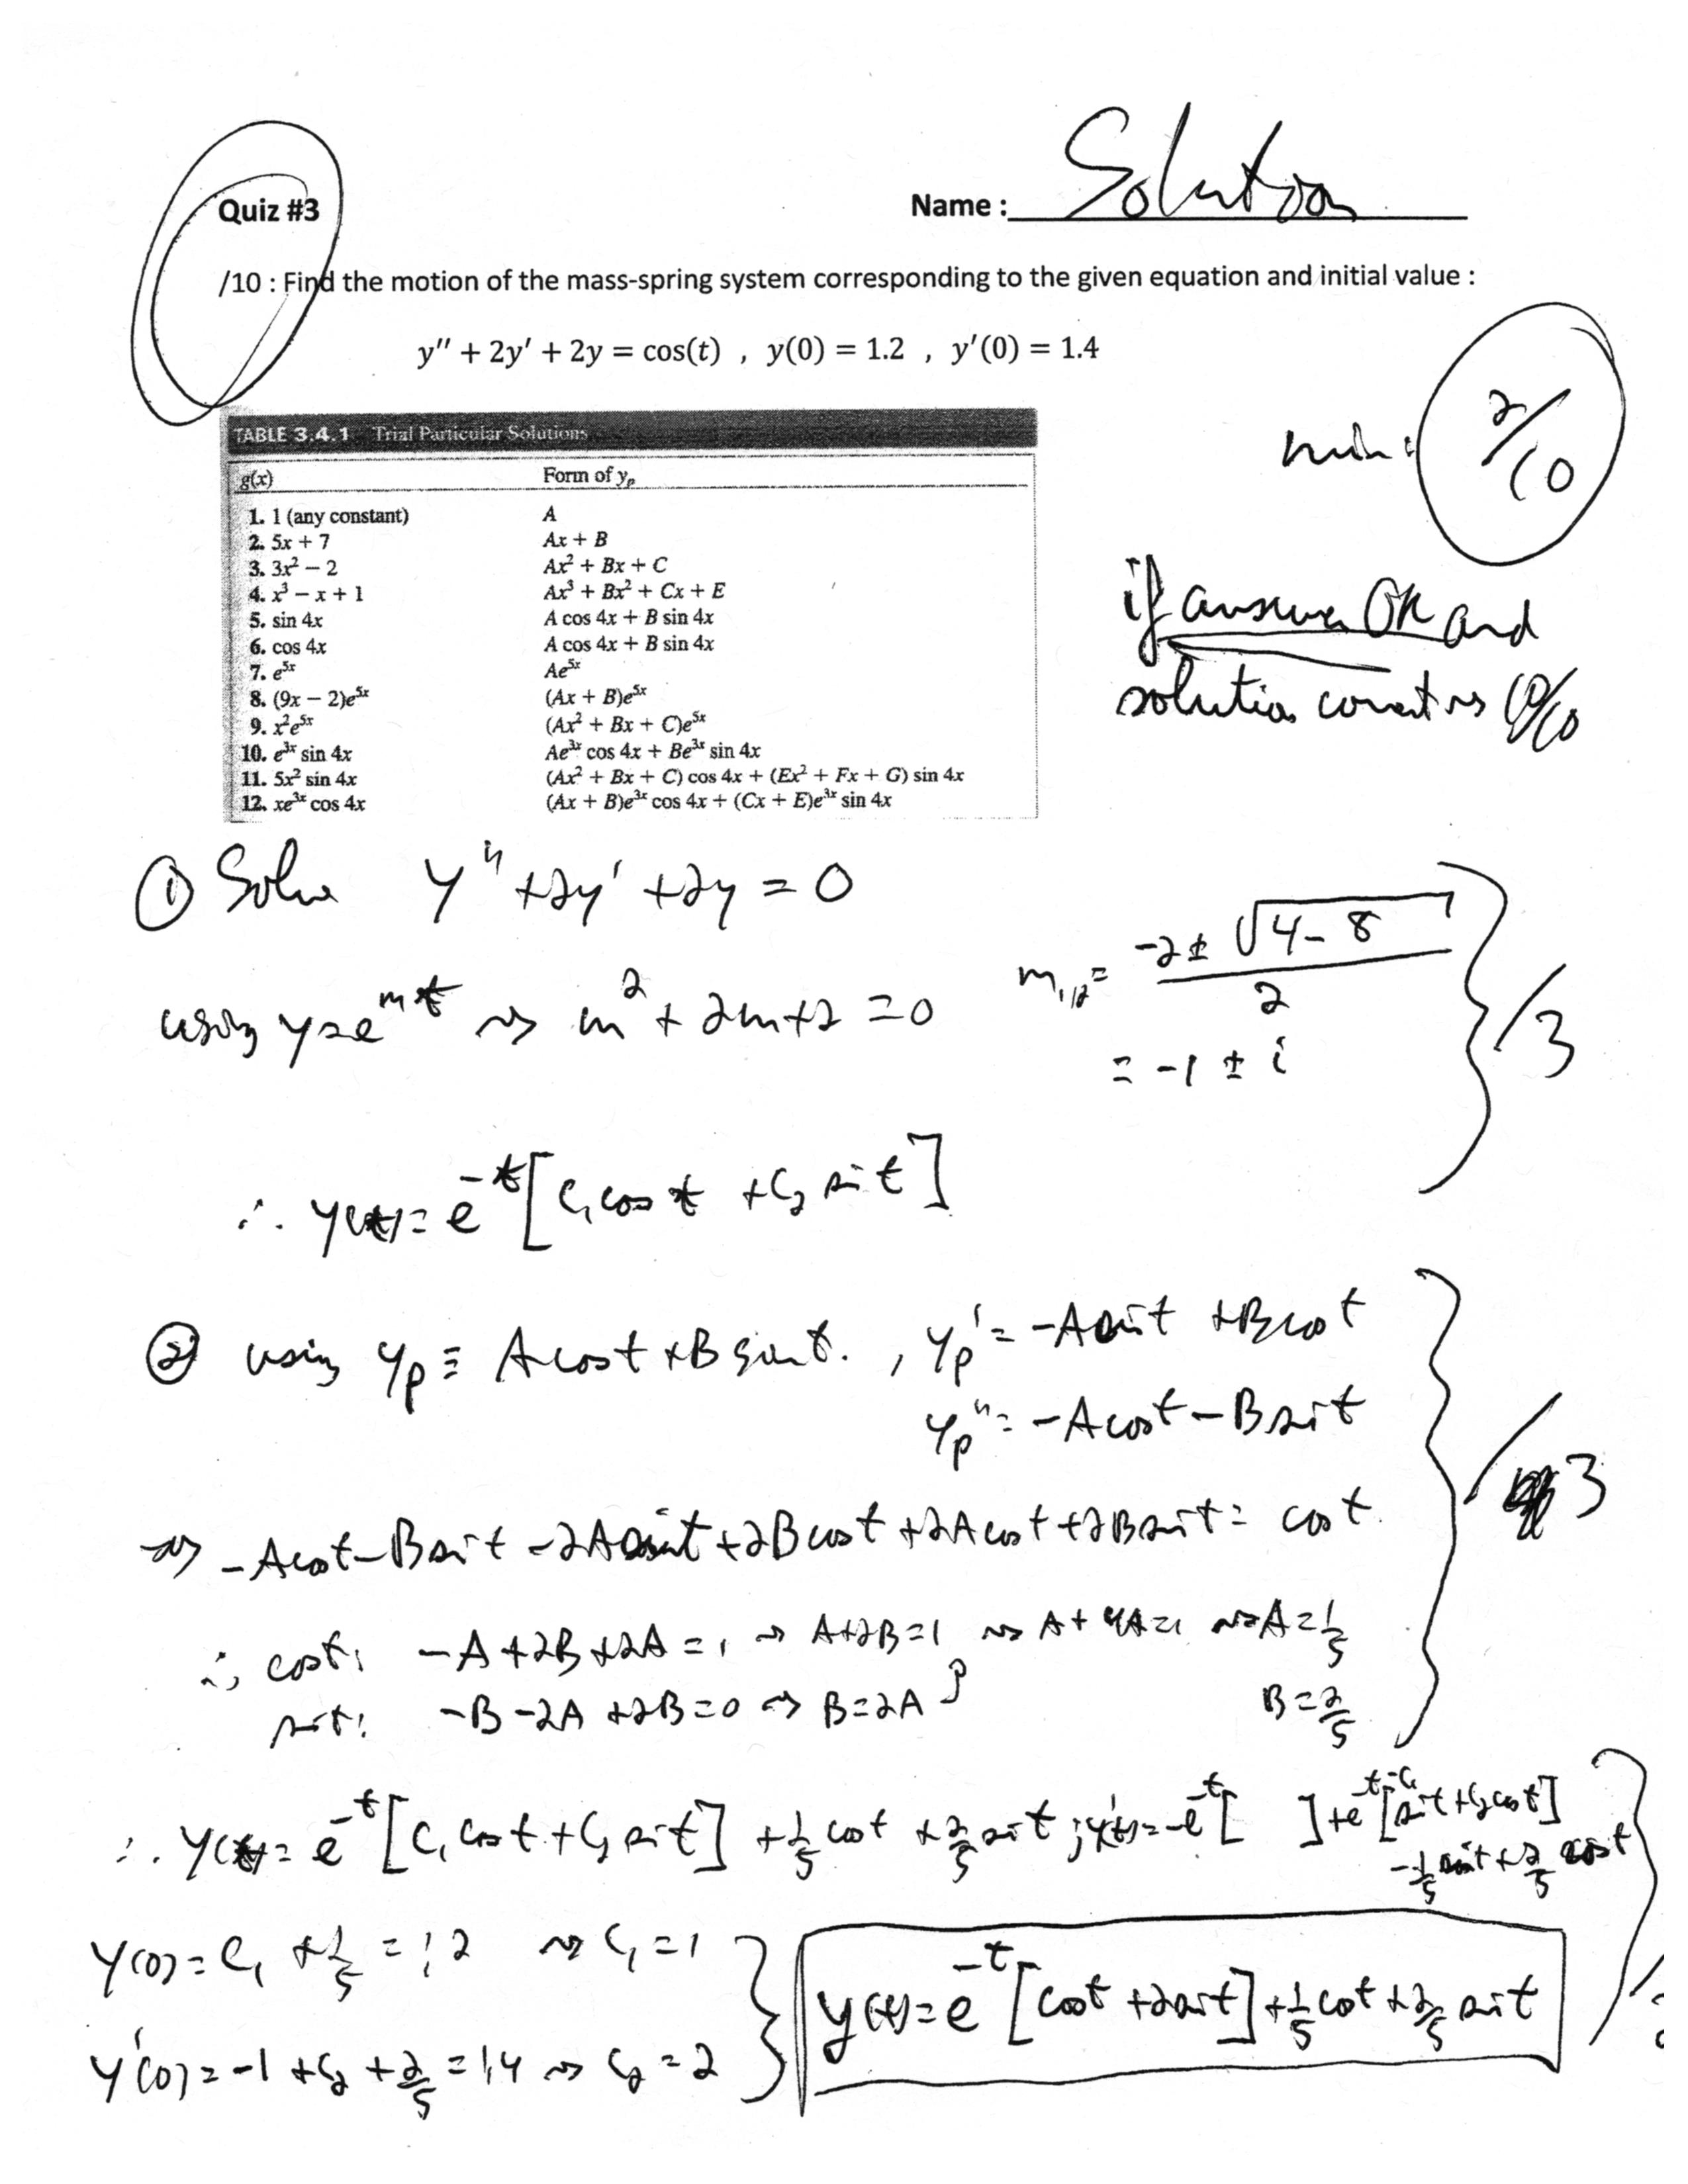 Quiz #3
Name : Solution
/10 : Find the motion of the mass-spring system corresponding to the given equation and initial value :
y'' + 2y' + 2y = cos(t) , y(0) = 1.2 , y'(0) = 1.4
min: 2/10
if answer OK and
solution correct ⇝ 10/10
TABLE 3.4.1 Trial Particular Solutions
g(x) Form of yₚ
1. 1 (any constant) A
2. 5x + 7 Ax + B
3. 3x² − 2 Ax² + Bx + C
4. x³ − x + 1 Ax³ + Bx² + Cx + E
5. sin 4x A cos 4x + B sin 4x
6. cos 4x A cos 4x + B sin 4x
7. e⁵ˣ Ae⁵ˣ
8. (9x − 2)e⁵ˣ (Ax + B)e⁵ˣ
9. x²e⁵ˣ (Ax² + Bx + C)e⁵ˣ
10. e³ˣ sin 4x Ae³ˣ cos 4x + Be³ˣ sin 4x
11. 5x² sin 4x (Ax² + Bx + C) cos 4x + (Ex² + Fx + G) sin 4x
12. xe³ˣ cos 4x (Ax + B)e³ˣ cos 4x + (Cx + E)e³ˣ sin 4x
① Solve y'' + 2y' + 2y = 0
using y = e^{mt} ⇝ m² + 2m + 2 = 0 m₁,₂ = (-2 ± √(4-8))/2
= -1 ± i
/3
∴ y(t) = e^{-t}[C₁ cos t + C₂ sin t]
② using yₚ = A cos t + B sin t. , yₚ' = -A sin t + B cos t
yₚ'' = -A cos t - B sin t
/3
⇝ -A cos t - B sin t - 2A sin t + 2B cos t + 2A cos t + 2B sin t = cos t.
∴ cos t: -A + 2B + 2A = 1 ⇝ A + 2B = 1 ⇝ A + 4A = 1 ⇝ A = 1/5
sin t: -B - 2A + 2B = 0 ⇝ B = 2A B = 2/5
∴ y(t) = e^{-t}[C₁ cos t + C₂ sin t] + 1/5 cos t + 2/5 sin t ; y'(t) = -e^{-t}[ ] + e^{-t}[-C₁ sin t + C₂ cos t]
-1/5 sin t + 2/5 cos t
y(0) = C₁ + 1/5 = 1.2 ⇝ C₁ = 1
y'(0) = -1 + C₂ + 2/5 = 1.4 ⇝ C₂ = 2
y(t) = e^{-t}[cos t + 2 sin t] + 1/5 cos t + 2/5 sin t